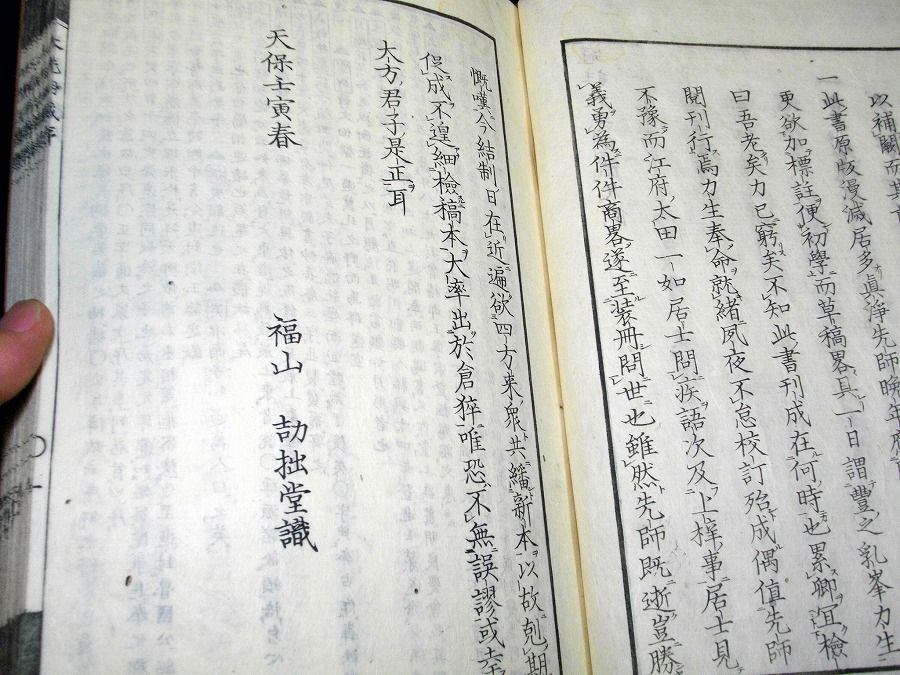 以補闕而其
一此書原版漫滅居多眞淨先師晩年
更欲加標註便初學而草稿畧具一日謂豐之乳峯力生
曰吾老矣力已窮矣不知此書刊成在何時也累卿宜檢
閲刊行焉力生奉命就緒夙夜不怠校訂殆成偶値先師
不豫而江府太田一如居士問疾語次及上梓事居士見
義勇為件件商畧遂至装冊問世也雖然先師既逝豈勝
慨嘆今結制日在近遍欲四方来衆共繙新本以故剋期
促成不遑細檢稿本大率出於倉猝唯恐不無誤謬或幸
太方君子是正耳
天保壬寅春
福山 劼拙堂識